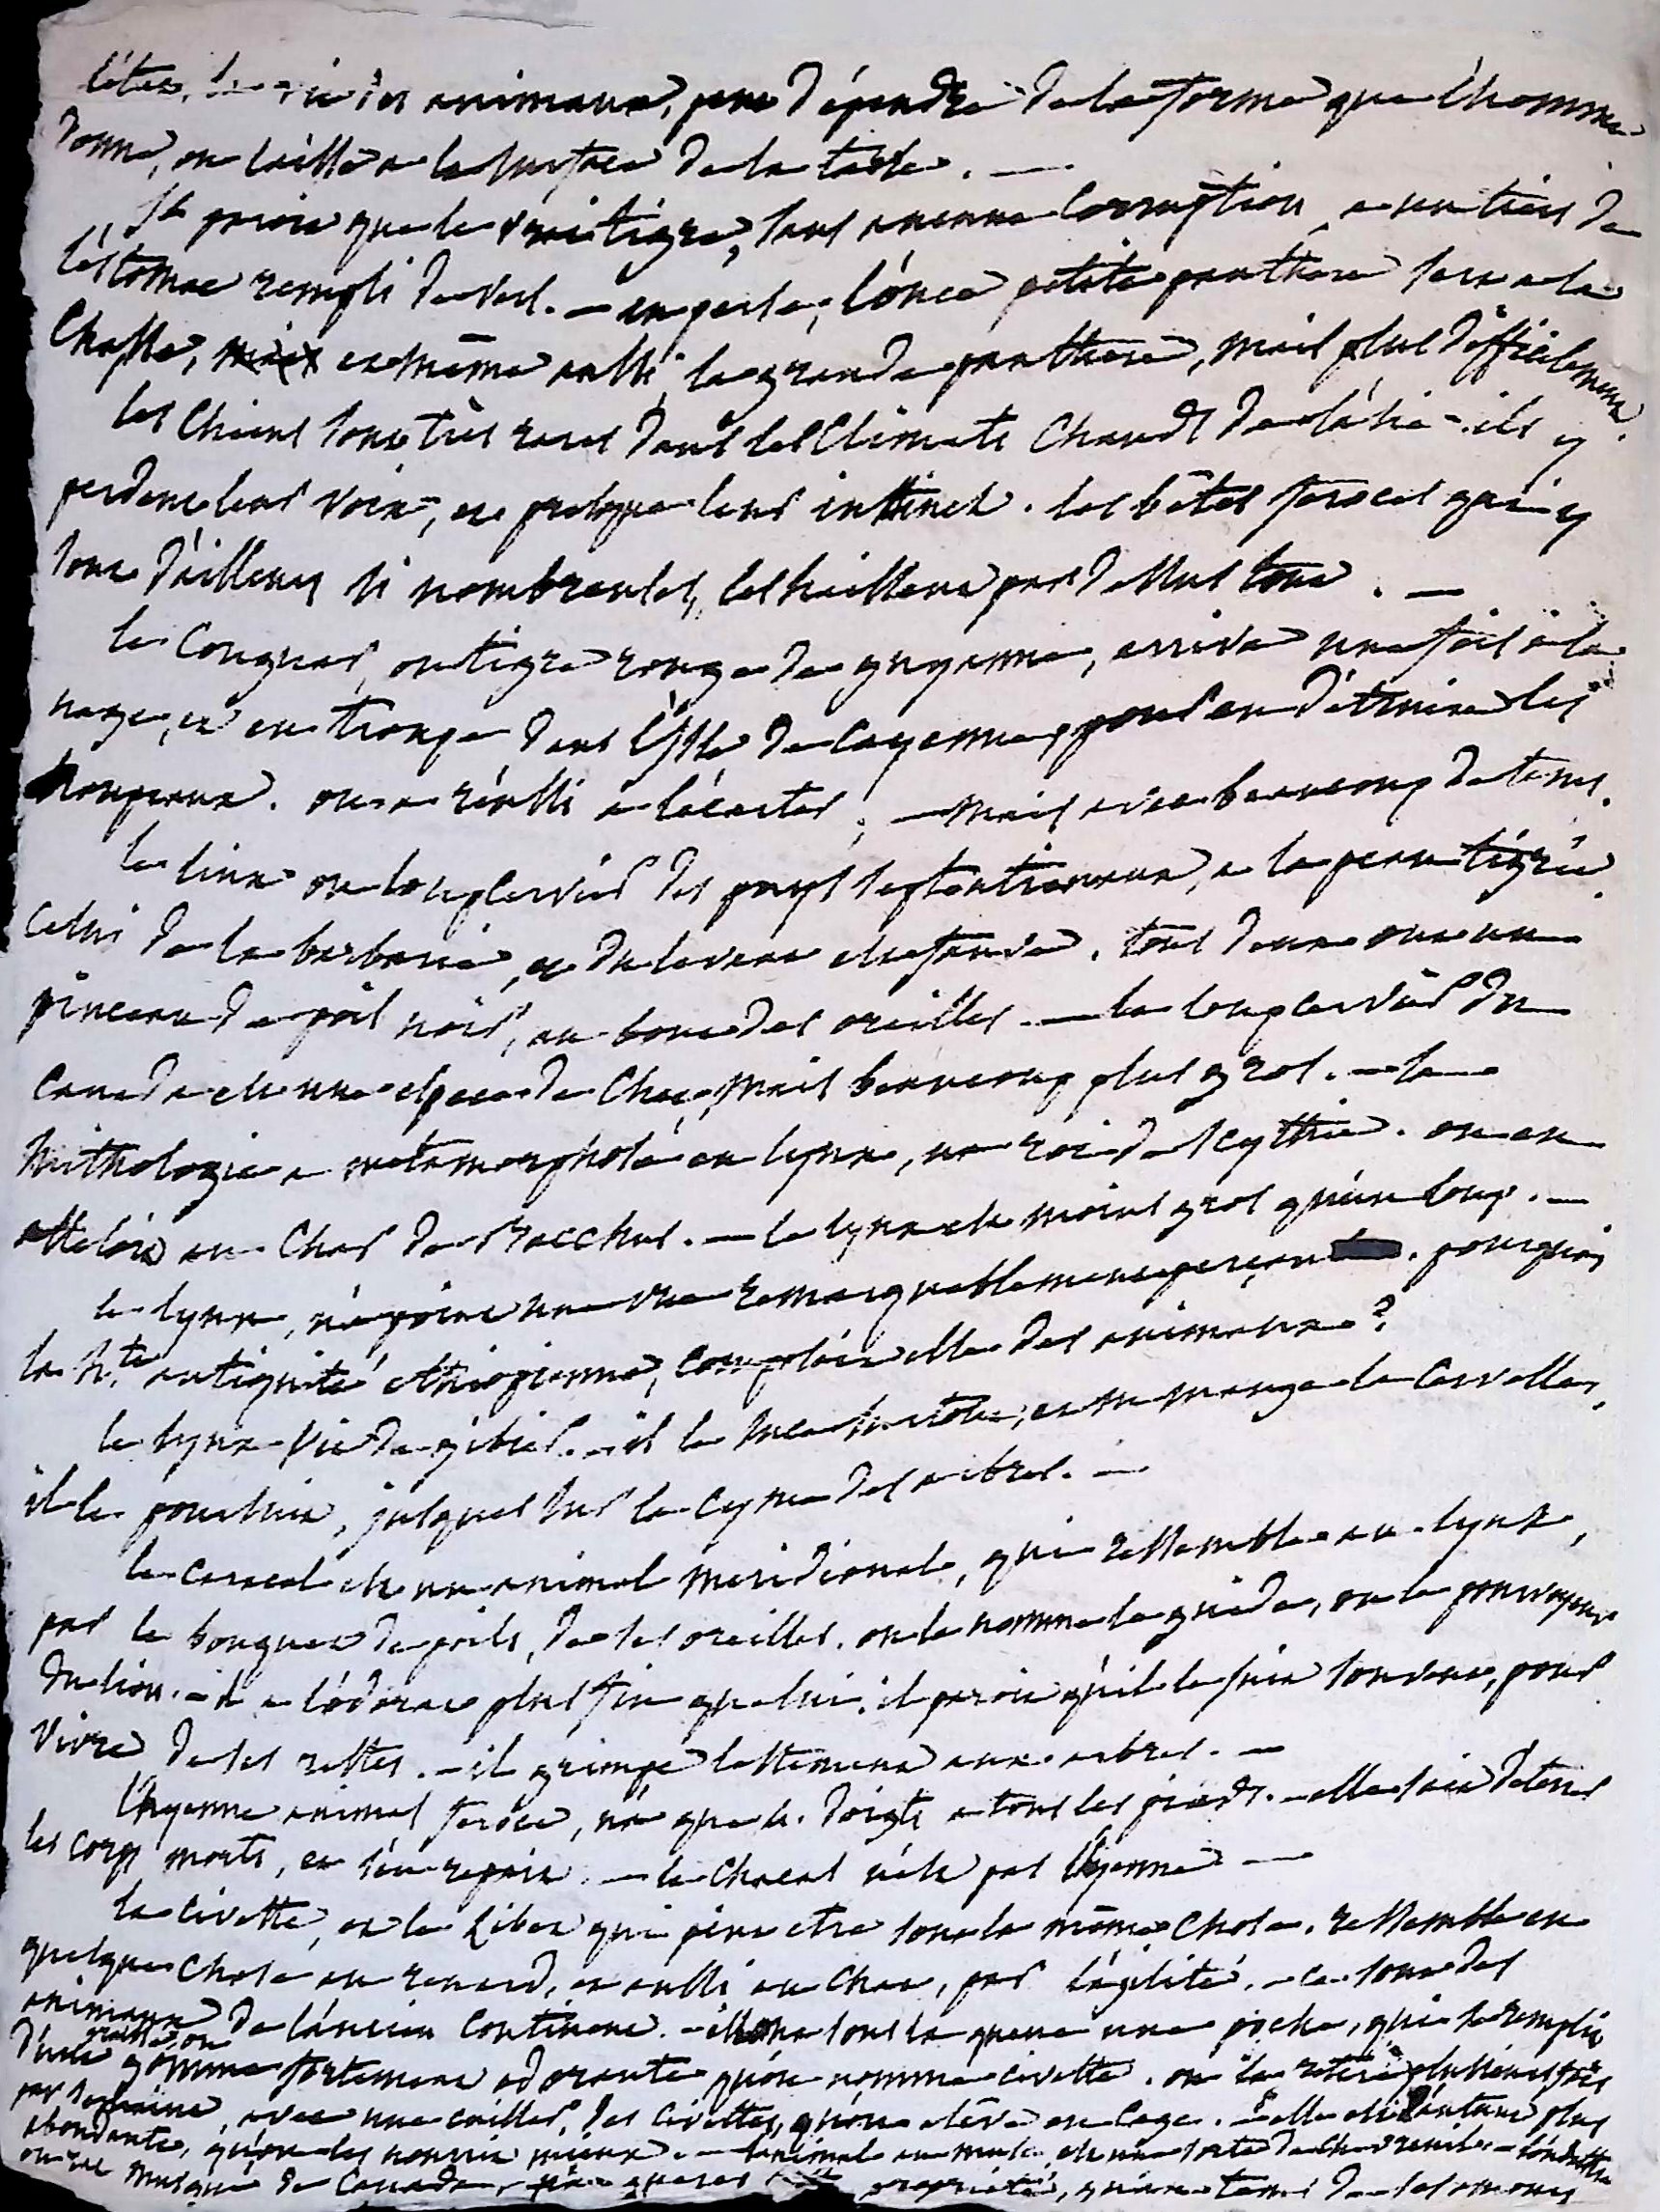 l'état, la vie des animaux, peut dépendre de la forme que l'homme
donne, ou laisse a la surface de la terre. —
Il paroit que le vrai tigre, sans aucune corruption a un tiers de
l'estomac rempli de vers. — en perse, l'once petite panthere sert a la
chasse, et même aussi la grande panthere, mais plus difficilement.
les chiens sont très rares dans les climats chauds de l'asie - ils y
perdent leur voix, et presque leur instinct. les bêtes feroces qui y
sont d'ailleurs si nombreuses, les haissent par dessus tout. —
le couguar, ou tigre rouge de guyanne, arriva une fois à la
nage, et en troupe dans l'isle de cayenne, pour en détruire les
troupeaux. on a réussi a l'écarter, — mais avec beaucoup de tems.
le linx ou loup cervier des pays septentrionaux, a la peau tigrée.
celui de la barbarie, et du levant est fauve. tous deux ont un
pinceau de poil noir, au bout des oreilles. — le loup cervier du
canada est une espece de chat, mais beaucoup plus gros. — la
mithologie a metamorphosé en lynx, un roi de scythie. on en
atteloit au char de Bacchus. — le lynx est moins gros qu'un loup. —
le lynx, n'a point une vue remarquablement perçante. pourquoi
la hte antiquité ethiopienne, comptoit elle des animaux?
le lynx vit de gibier. — il le met en mange la cervelle,
il le poursuit, jusques sur la cyme des arbres. —
le caracal est un animal meridional, qui ressemble au lynx,
par le bouquet de poils, de ses oreilles. on le nomme le guide, ou le pourvoyeur
du lion. — il a l'odorat plus fin que lui. il paroit qu'il le suit souvent, pour
vivre de ses restes. — il grimpe lestement aux arbres. —
l'hyenne animal feroce, n'a que 4. doigts a tous les pieds. — elle sait deterrer
les corps morts, et s'en repait. — le chacal n'est pas l'hyenne —
la civette, et le zibet qui peut etre sont la même chose. ressemble en
quelque chose au renard, et aussi au chat, par l'agilité. — ce sont des
animaux de l'ancien continent. — ils ont sous la queue une poche, qui se remplit
d'une graisse, ou
gomme fortement odorante qu'on nomme civette. on la retire plusieurs fois
par semaine, avec une cuiller, des civettes, qu'on eleve en cage. — elle est d'autant plus
abondante, qu'on les nourrit mieux. — l'animal au musc, est une sorte de chevreuil. — l'ondatra
ou rat musqué de Canada, n'a gueres propriété, qu'au tems de ses amours